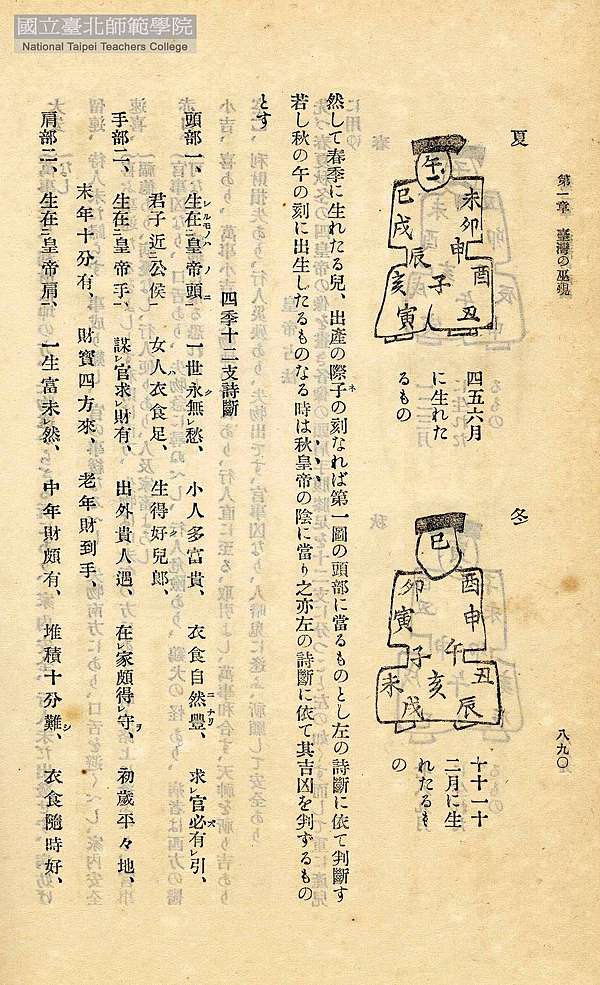 國立臺北師範學院
National Taipei Teachers College
第一章 臺灣の巫覡
八九〇
夏
午
未卯申酉丑
巳戌辰子亥寅人
四五六月
に生れた
るもの
冬
巳
酉申午丑辰
卯寅子亥未戌
十十一十
二月に生
れたるも
の
然して春季に生れたる兒、出產の際子の刻なれば第一圖の頭部に當るものとし左の詩斷に依て判斷す
若し秋の午の刻に出生したるものなる時は秋皇帝の陰に當り之亦左の詩斷に依て其吉凶を判ずるもの
とす
四季十二支詩斷
頭部一、生在皇帝頭、一世永無愁、小人多富貴、衣食自然豐、求官必有引、
君子近公侯、女人衣食足、生得好兒郎、
手部二、生在皇帝手、謀官求財有、出外貴人遇、在家頗得守、初歲平々地、
末年十分有、財寶四方來、老年財到手、
肩部二、生在皇帝肩、一生富未然、中年財頗有、堆積十分難、衣食隨時好、